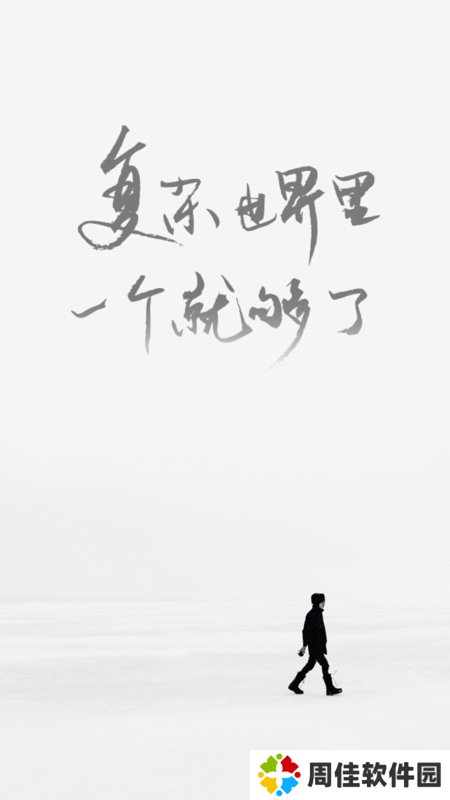 复杂世界里
一个就够了
周佳软件园